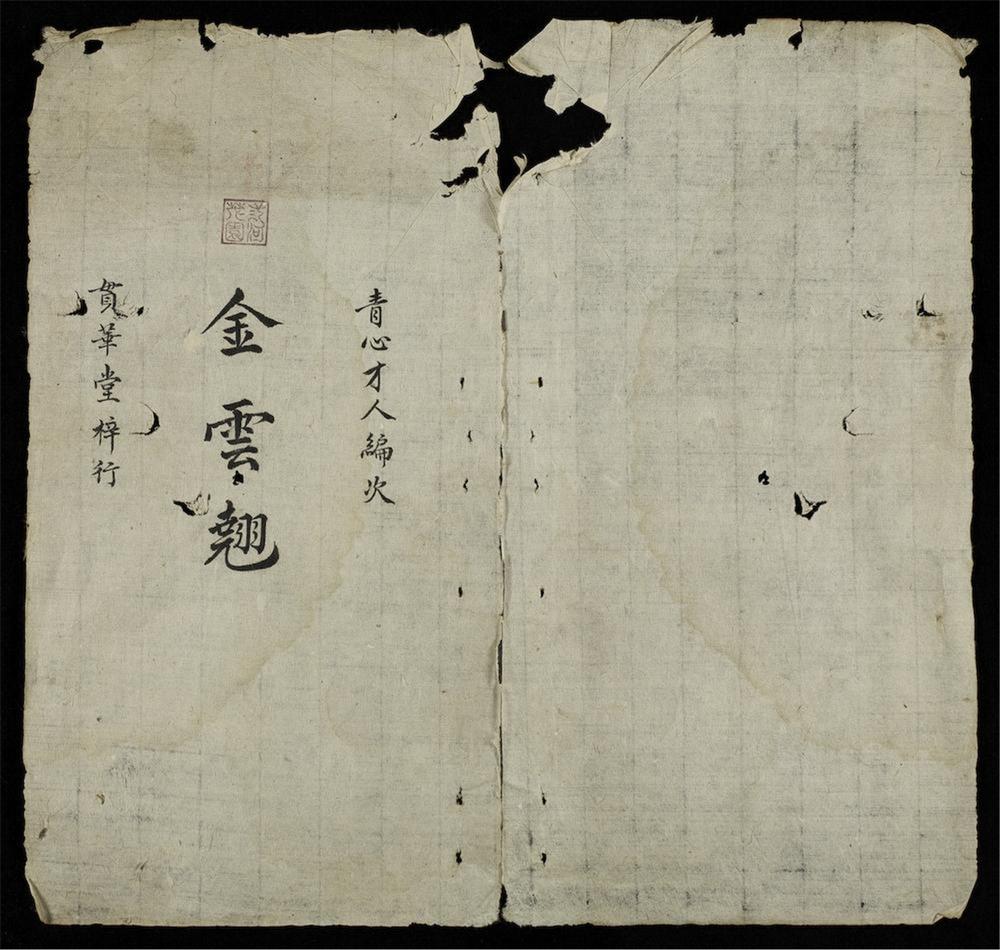 青心才人編次
金雲翹
貫華堂梓行